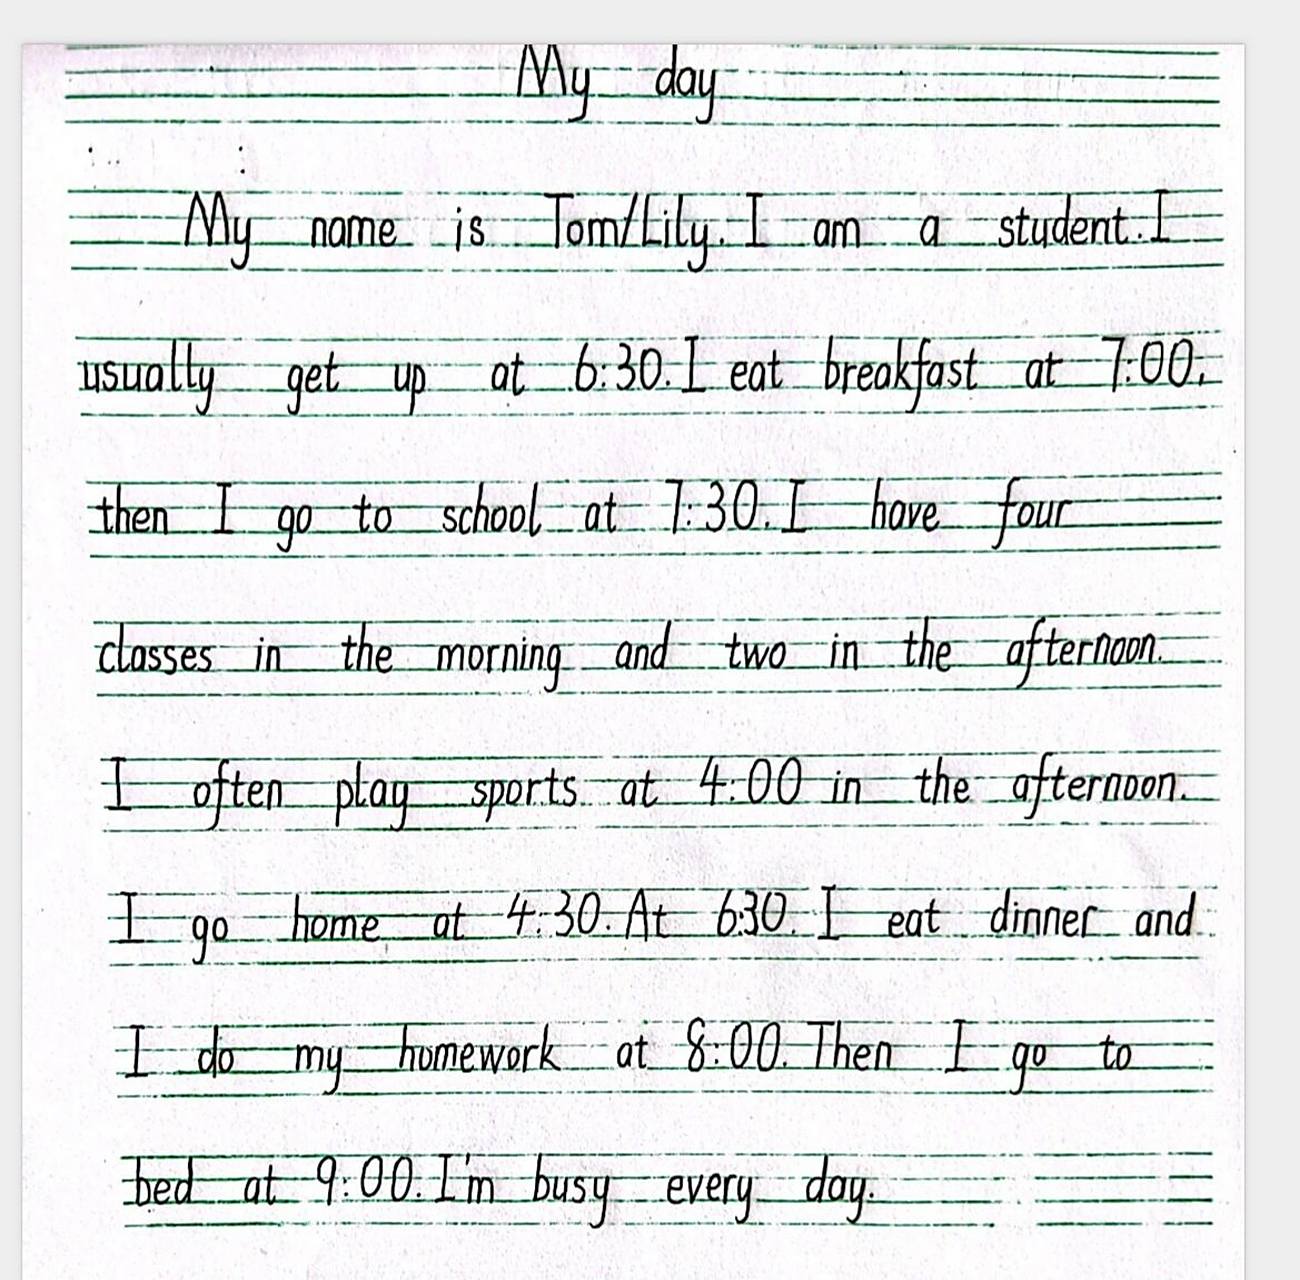 My day
My name is Tom/Lily. I am a student. I
usually get up at 6:30. I eat breakfast at 7:00.
then I go to school at 7:30. I have four
classes in the morning and two in the afternoon.
I often play sports at 4:00 in the afternoon.
I go home at 4:30. At 6:30. I eat dinner and
I do my homework at 8:00. Then I go to
bed at 9:00. I'm busy every day.